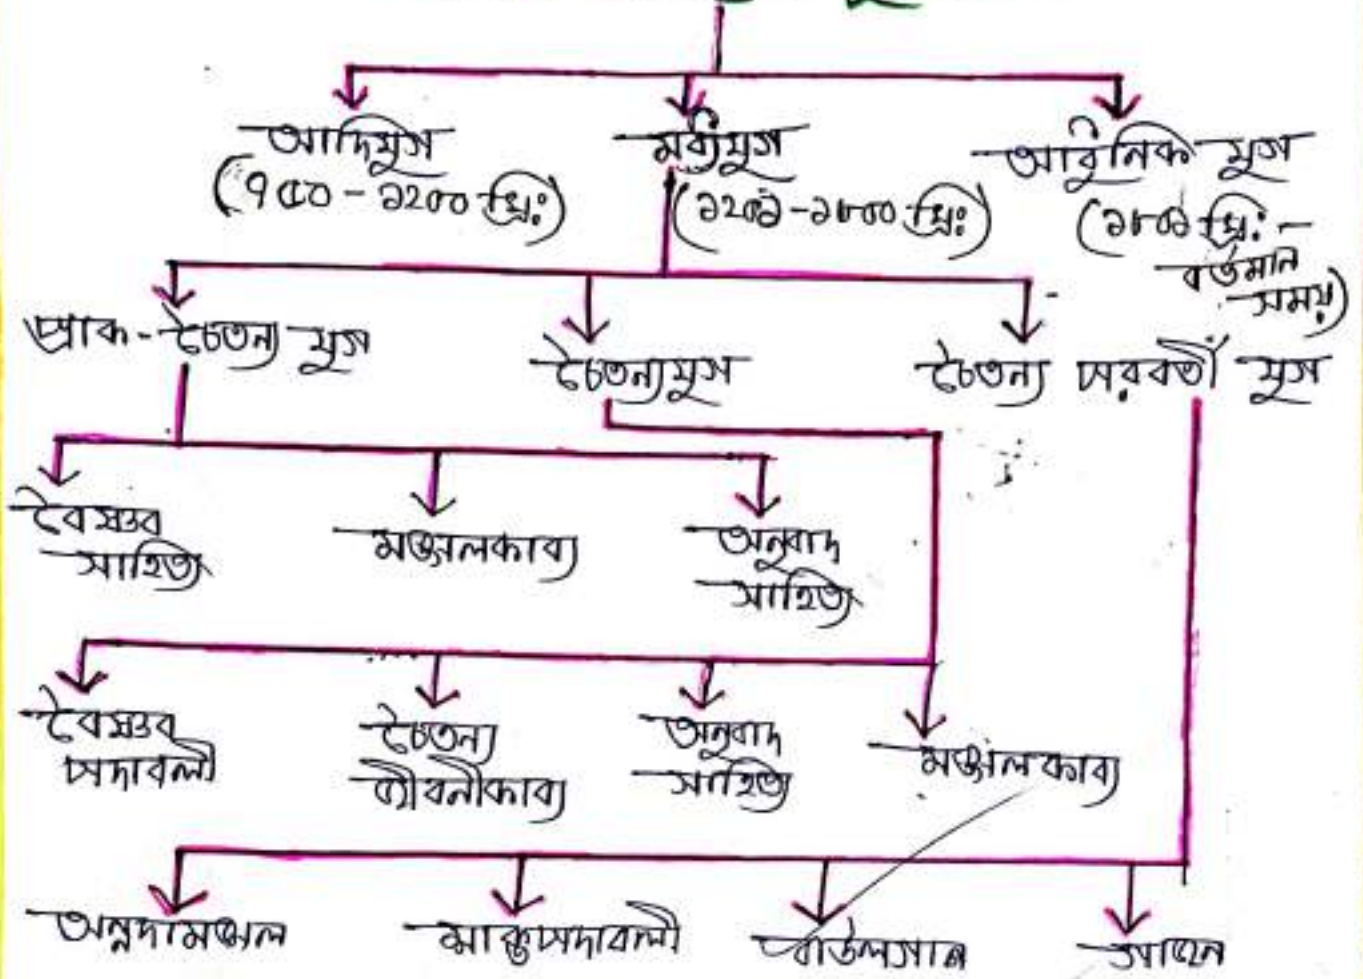 আদিযুগ
(৭৫০ - ১২০০ খ্রিঃ)
মধ্যযুগ
(১২০১ - ১৮০০ খ্রিঃ)
আধুনিক যুগ
(১৮০১ খ্রিঃ -
বর্তমান
সময়)
প্রাক - চৈতন্য যুগ
চৈতন্যযুগ
চৈতন্য পরবর্তী যুগ
বৈষ্ণব
সাহিত্য
মঙ্গলকাব্য
অনুবাদ
সাহিত্য
বৈষ্ণব
পদাবলী
চৈতন্য
জীবনীকাব্য
অনুবাদ
সাহিত্য
মঙ্গলকাব্য
অন্নদামঙ্গল
শাক্তপদাবলী
বাউলগান